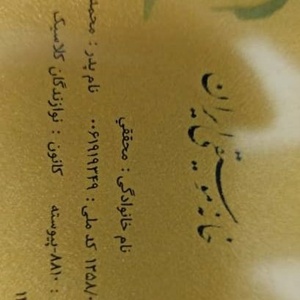 خانه موسیقی ایران
نام خانوادگی : محققی
نام پدر : محمد
۱۳۵۸/۰ کد ملی : ۰۰۶۱۹۱۹۳۴۹
کانون : نوازندگان کلاسیک
: ۸۸۱۰-پیوسته